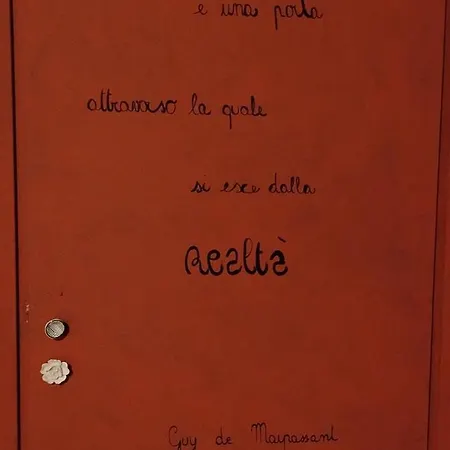 è una porta
attraverso la quale
si esce dalla
Realtà
Guy de Maupassant